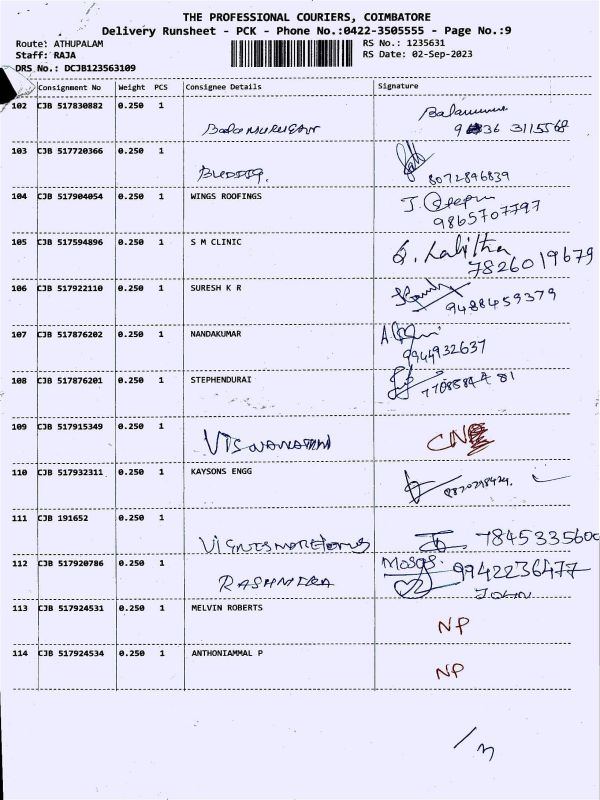 THE PROFESSIONAL COURIERS, COIMBATORE
Delivery Runsheet - PCK - Phone No.:0422-3505555 - Page No.:9
Route: ATHUPALAM RS No.: 1235631
Staff: RAJA RS Date: 02-Sep-2023
DRS No.: DCJB123563109
Consignment No Weight PCS Consignee Details Signature
102 CJB 517830882 0.250 1
Balamurugan 3115568
103 CJB 517720366 0.250 1
8072896839
104 CJB 517904054 0.250 1 WINGS ROOFINGS J.
9865707797
105 CJB 517594896 0.250 1 S M CLINIC Lalitha
7826019679
106 CJB 517922110 0.250 1 SURESH K R
9488459379
107 CJB 517876202 0.250 1 NANDAKUMAR
9944932637
108 CJB 517876201 0.250 1 STEPHENDURAI
109 CJB 517915349 0.250 1
110 CJB 517932311 0.250 1 KAYSONS ENGG
111 CJB 191652 0.250 1
7845335600
112 CJB 517920786 0.250 1 MOSES. 9942236477
RASHMIKA JOHN
113 CJB 517924531 0.250 1 MELVIN ROBERTS
NP
114 CJB 517924534 0.250 1 ANTHONIAMMAL P
NP